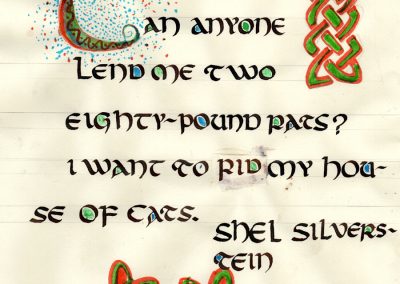 Can anyone
Lend me two
eighty-pound rats?
I want to rid my hou-
se of cats.
Shel Silvers-
tein